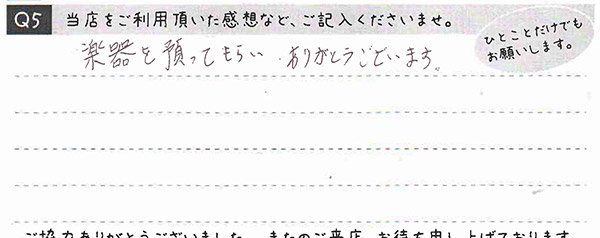 Q5 当店をご利用頂いた感想など、ご記入くださいませ。
ひとことだけでも
お願いします。
楽器を預ってもらい ありがとうございます。
ご協力ありがとうございました。またのご来店、お待ち申し上げております。